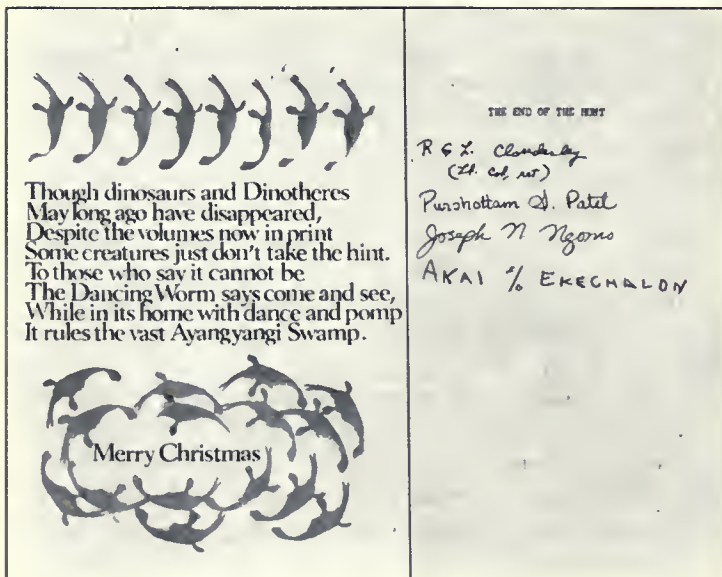 Though dinosaurs and Dinotheres
May long ago have disappeared,
Despite the volumes now in print
Some creatures just don't take the hint.
To those who say it cannot be
The Dancing Worm says come and see,
While in its home with dance and pomp
It rules the vast Ayangyangi Swamp.
Merry Christmas
THE END OF THE HUNT
R & L.
(Lt. Col, ret)
Purshottam S. Patel
Joseph N Ngomo
AKAI % EKECHALON